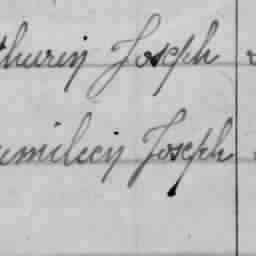 thurin Joseph
umilien Joseph